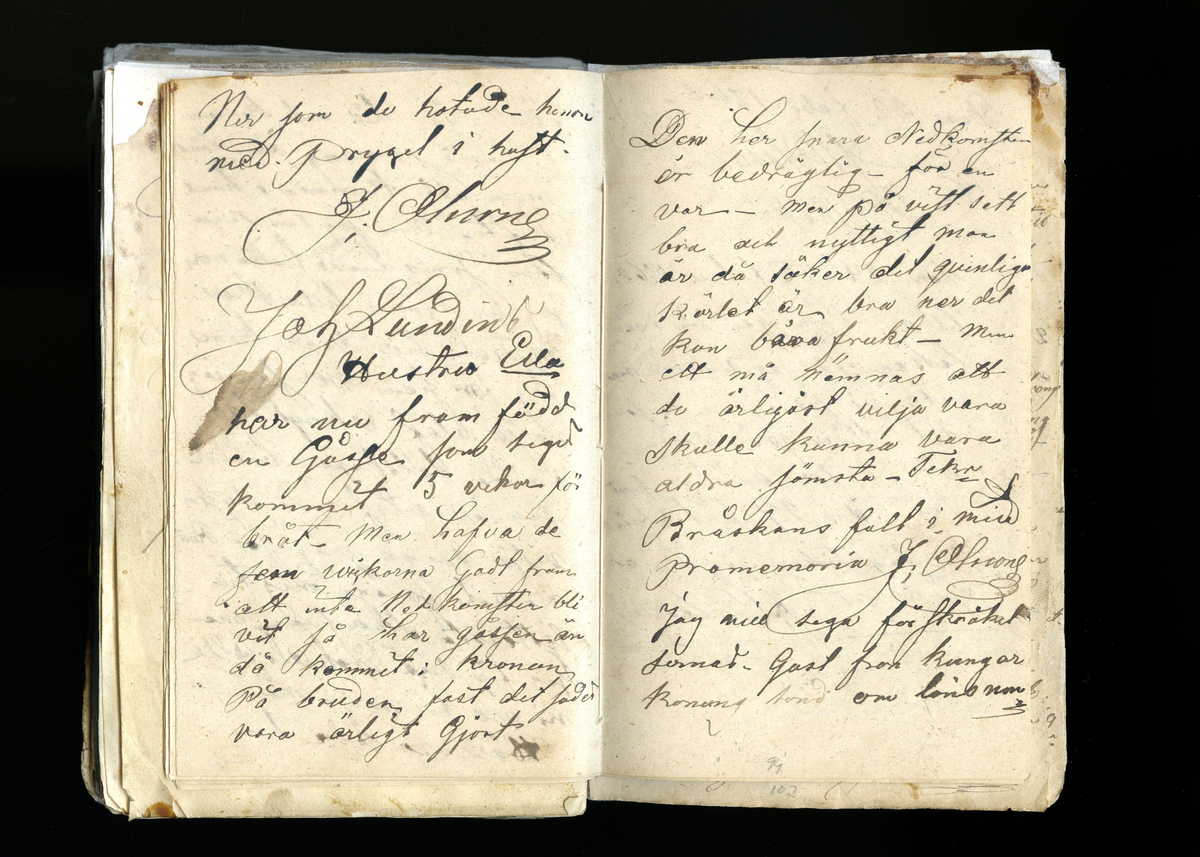 Ner som de hotade honom
med. Prygel i hast.
J, Olsson
Joh Lundins
Hustru Eva
har nu fram född
en Gåsse som seges
kommet 5 vekor för
bråt- Men hafva de
fem wikorna Gådt fram
att inte Nedkomsten bli
vit så har gåssen än
då kommet i kronan
På bruden, fast det
vara ärligt Gjort
Den her snara Nedkomsten
är bedräglig - för en
var - men på vitt sett
bra och nyttigt man
är då säker det qvinliga
kärlet är bra ner det
kan bära frukt - Men
ett må nämnas att
de ärligast vilja vara
skulle kunna vara
aldra sämsta -
Bråskans falt i min
Promemoria J, Olsson
Jag vill sega för
Gast fron kungar
Konung om
94
102